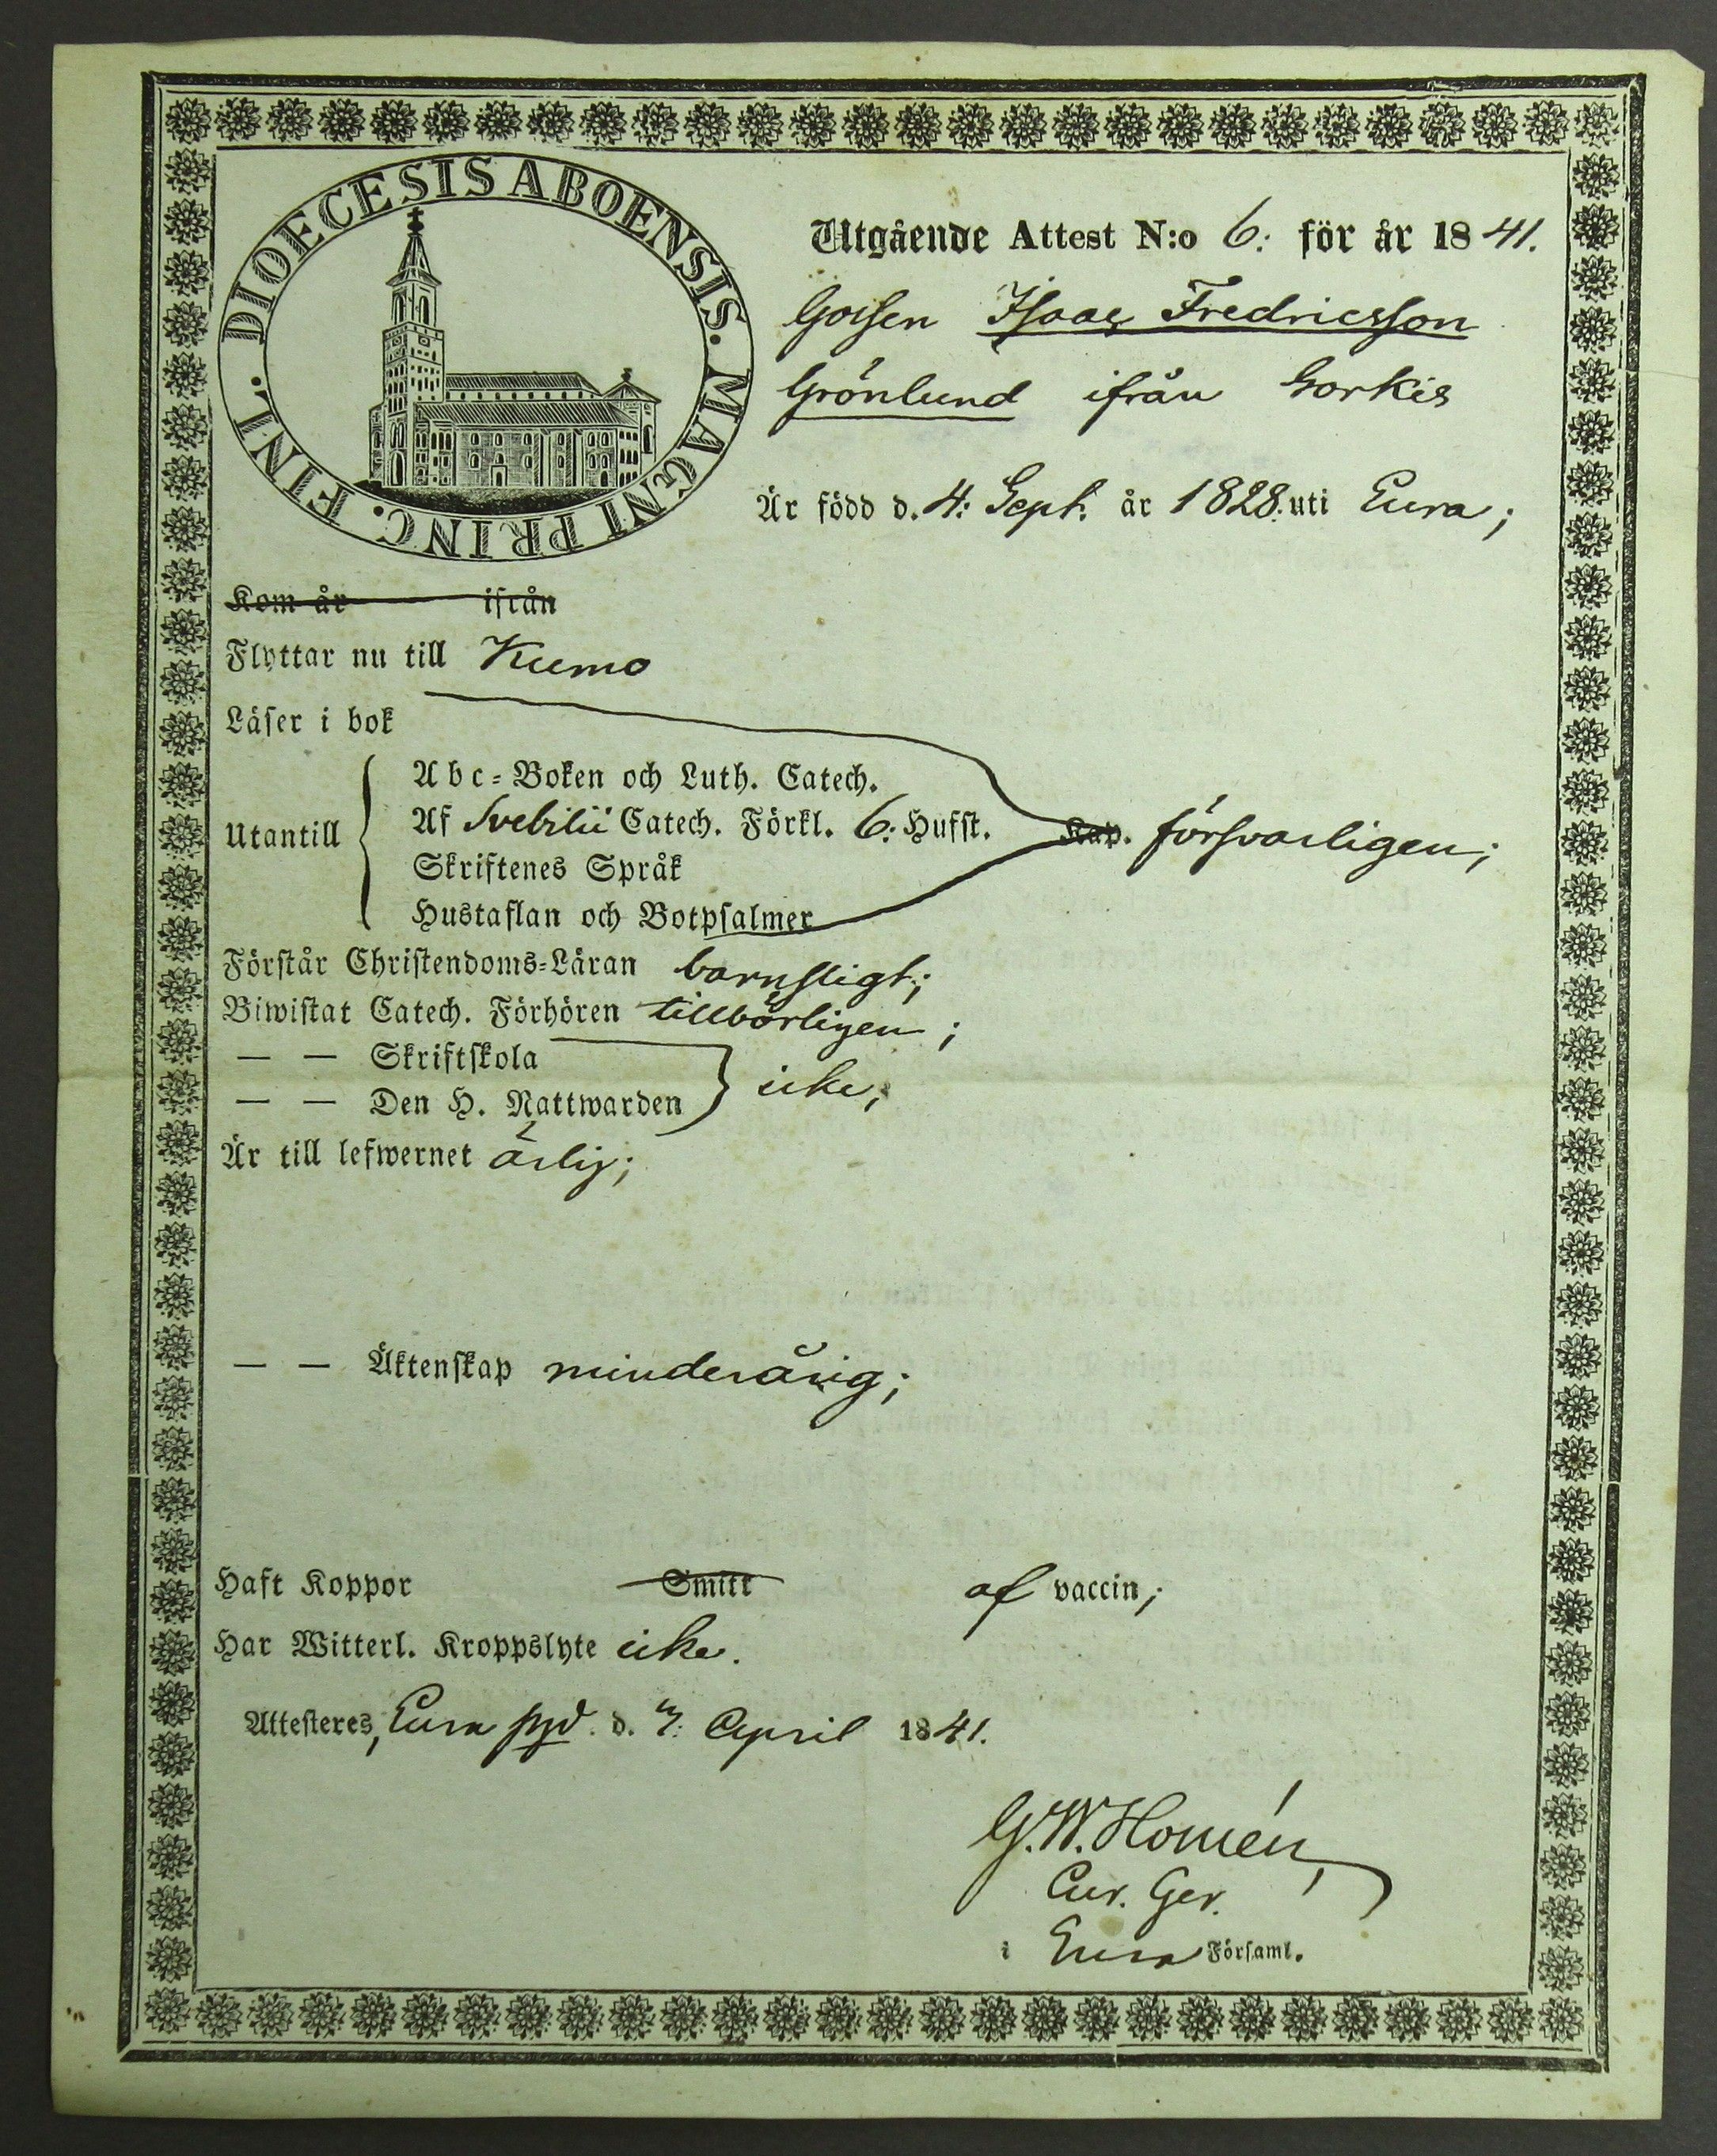 DIOECESIS ABOENSIS. MAGNI PRINC. FINL.
Utgående Attest N:o 6: för år 1841.
Gossen Isaac Fredricsson
Grönlund ifrån Sorkis
Är född d. 4: Sept. år 1828. uti Eura;
Kom år ifrån
Flyttar nu till Kumo
Läser i bok
Abc-Boken och Luth. Catech.
Utantill Af Svebilii Catech. Förkl. 6: Hufst. Kap. försvarligen;
Skriftenes Språk
Hustaflan och Botpsalmer
Förstår Christendoms-Läran barnsligt;
Biwistat Catech. Förhören tillbörligen;
— — Skriftskola
— — Den H. Nattwarden icke;
Är till lefwernet ärlig;
— — Äktenskap minderårig;
Haft Koppor Smitt af vaccin;
Har Witterl. Kroppslyte icke.
Attesteres, Eura pgd. d. 7: April 1841.
G. W. Homén,
Cur. Ger.
i Eura Församl.